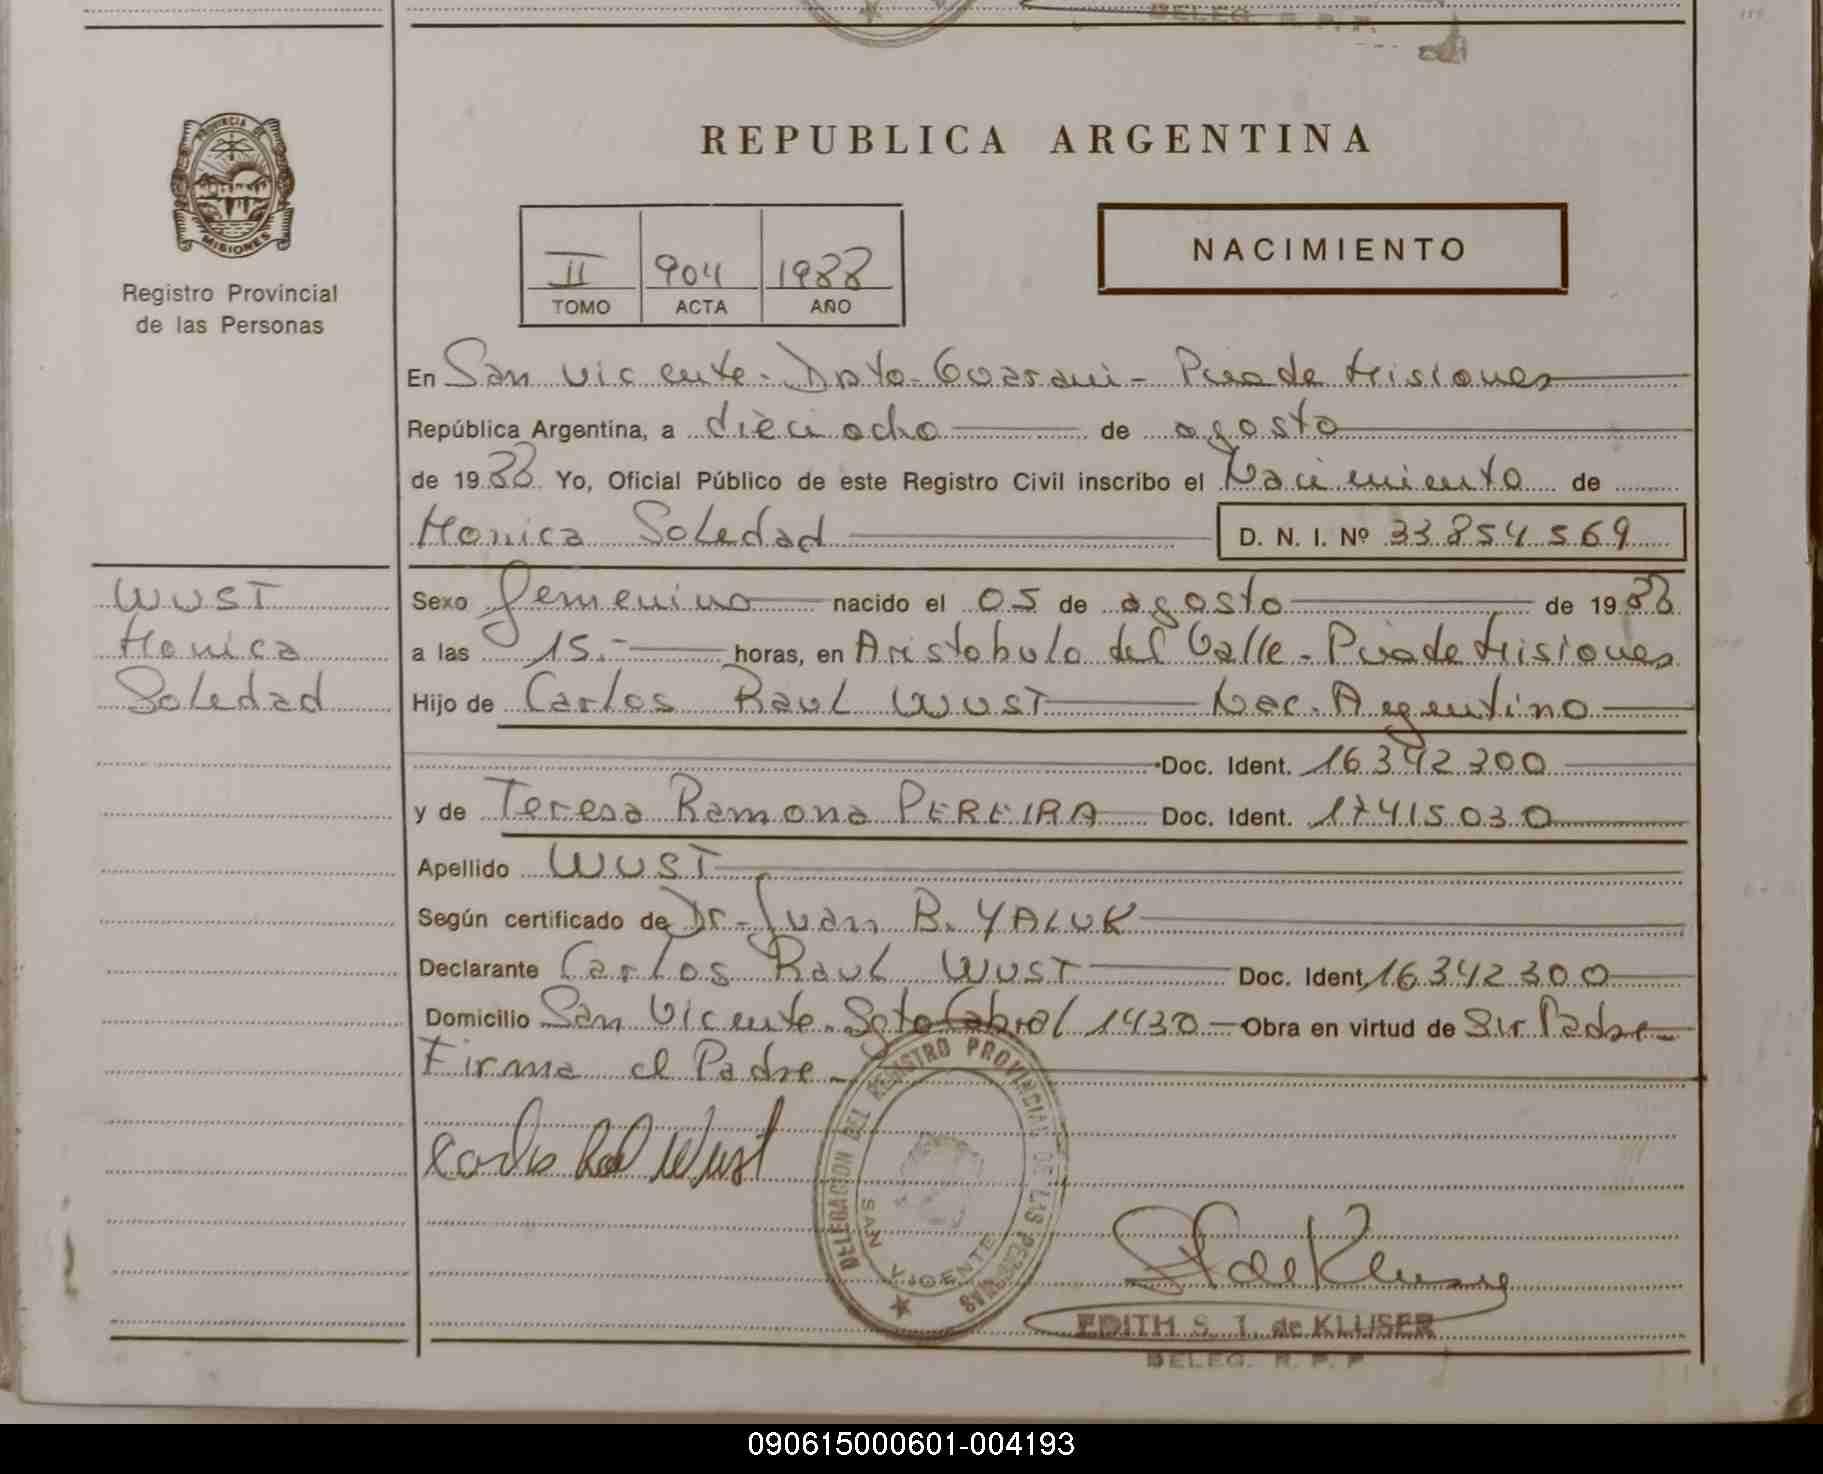 DELEG. R. P. P.
PROVINCIA DE
MISIONES
Registro Provincial
de las Personas
REPUBLICA ARGENTINA
NACIMIENTO
II 904 1988
TOMO ACTA AÑO
En San Vicente - Dpto - Guarani - Pcia de Misiones
República Argentina, a dieciocho de agosto
de 1988 Yo, Oficial Público de este Registro Civil inscribo el Nacimiento de
Monica Soledad D. N. I. Nº 33854569
WUST
Monica
Soledad
Sexo femenino nacido el 05 de agosto de 1988
a las 15.- horas, en Aristobulo del Valle - Pcia de Misiones
Hijo de Carlos Raul WUST Nac. Argentino
Doc. Ident. 16342300
y de Teresa Ramona PEREIRA Doc. Ident. 17415030
Apellido WUST
Según certificado de Dr. Juan B. YALUK
Declarante Carlos Raul WUST Doc. Ident 16342300
Domicilio San Vicente - Sgto Cabral 1430 - Obra en virtud de Sir Padre -
Firma el Padre -
Carlos Raul Wust
DELEGACION DEL REGISTRO PROVINCIAL DE LAS PERSONAS
SAN VICENTE
EDITH S. T. de KLUSER
DELEG. R. P. P.
090615000601-004193